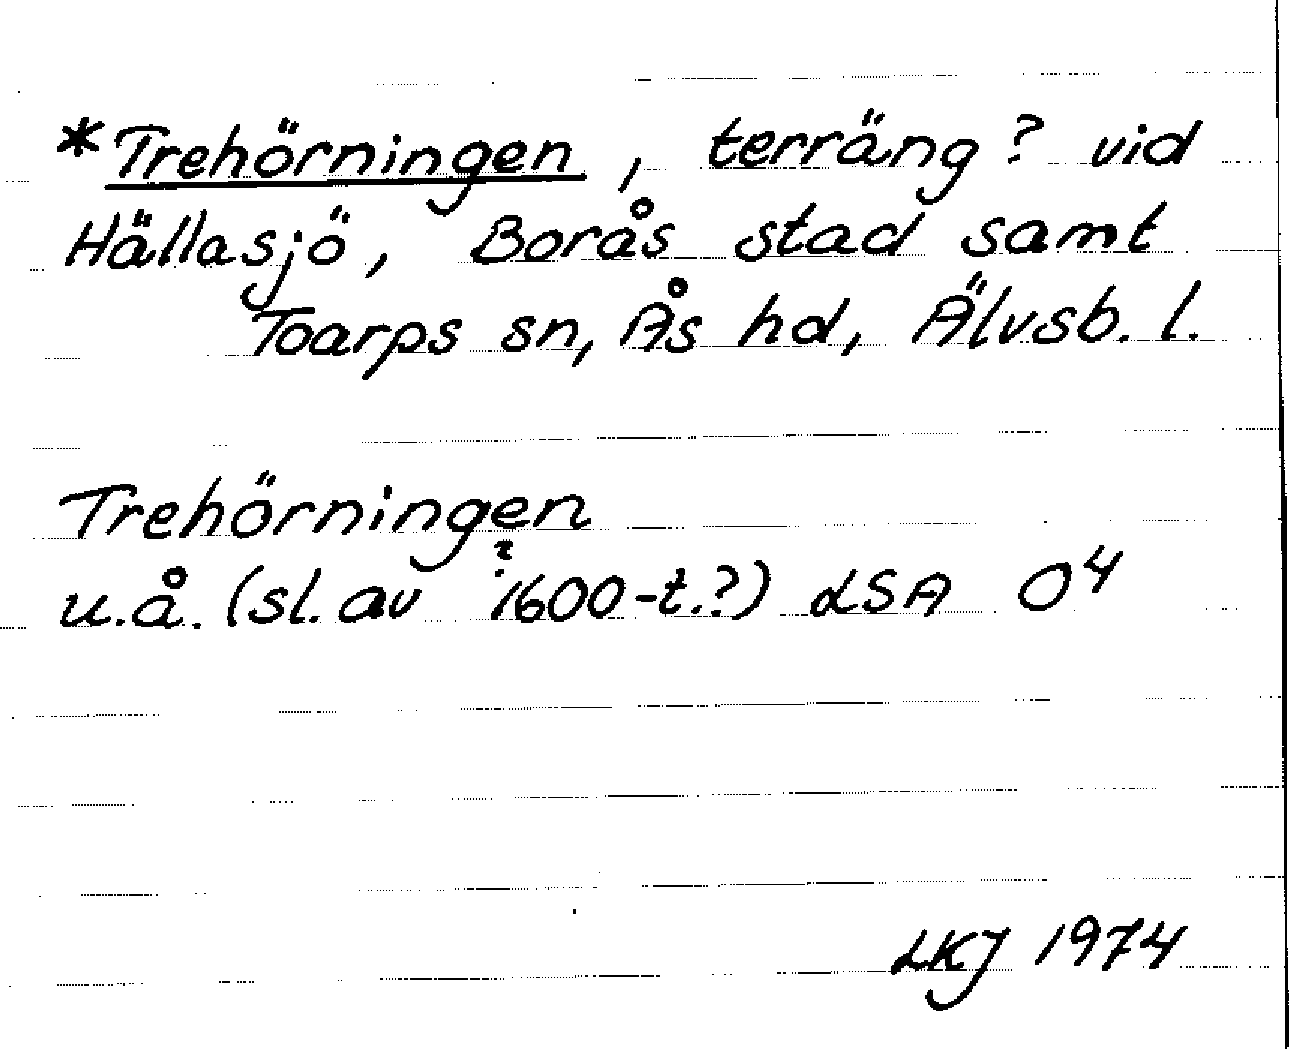 *Trehörningen, terräng? vid
Hällasjö, Borås stad samt
Toarps sn, Ås hd, Älvsb. l.
Trehörningen
u.å. (sl. av 1600-t.?) LSA O4
LKJ 1974